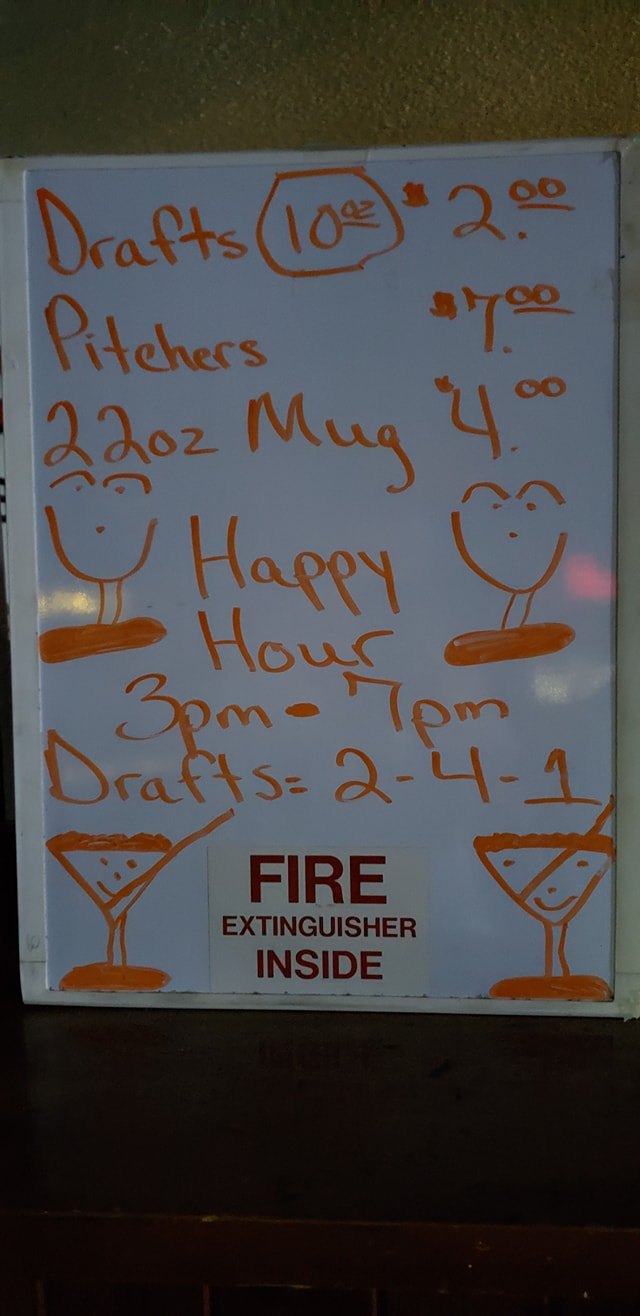 Drafts 10oz $2.00
Pitchers $7.00
22oz Mug $4.00
Happy
Hour
3pm - 7pm
Drafts= 2-4-1
FIRE
EXTINGUISHER
INSIDE